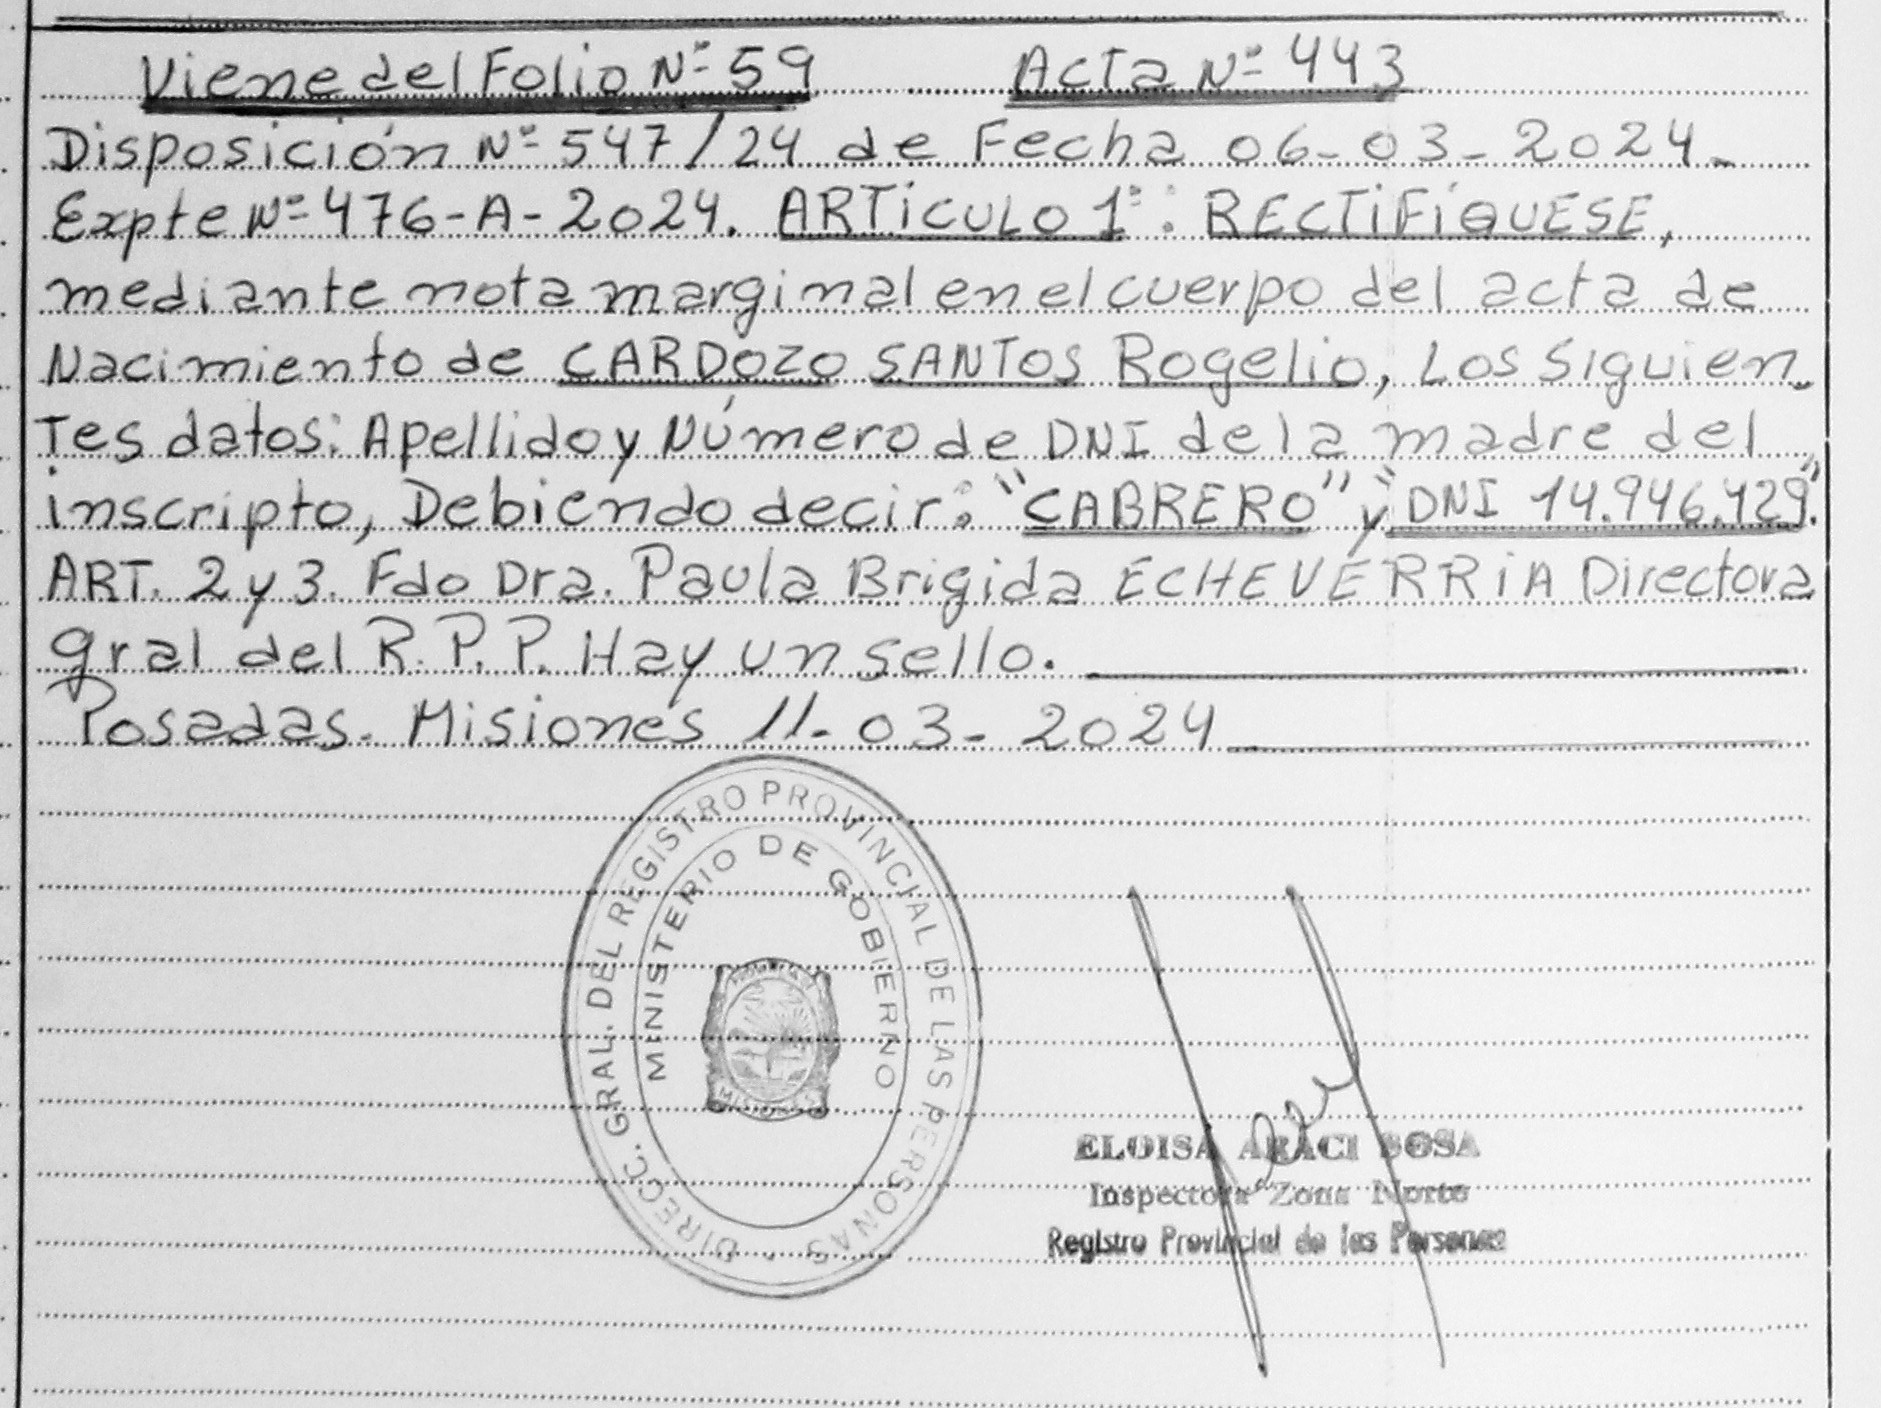 Viene del Folio Nº 59 Acta Nº 443
Disposición Nº 547/24 de Fecha 06-03-2024.
Expte Nº 476-A-2024. ARTiCULO 1º: RECTiFÍQUESE,
mediante nota marginal en el cuerpo del acta de
Nacimiento de CARDOZO SANTOS Rogelio, Los Siguien-
Tes datos: Apellido y Número de DNI de la madre del
inscripto, Debiendo decir: "CABRERO" y "DNI 14.946.429".
ART. 2 y 3. Fdo Dra. Paula Brigida ECHEVERRiA Directora
gral del R.P.P. Hay un sello.
Posadas. Misiones 11-03-2024
DIRECC. GRAL. DEL REGISTRO PROVINCIAL DE LAS PERSONAS
MINISTERIO DE GOBIERNO
MISIONES
ELOISA ARACI SOSA
Inspectora Zona Norte
Registro Provincial de las Personas